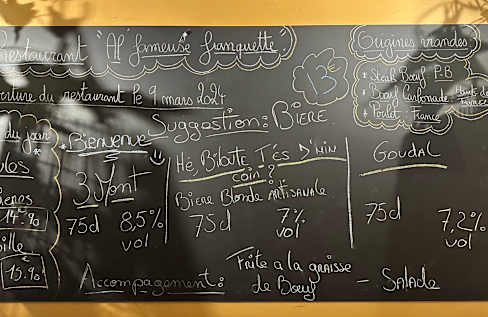 Restaurant "Al' fameuse franquette"
Origines viandes
* Steak Bœuf P.B
* Bœuf Carbonade Hauts de France
* Poulet France
13€
erture du restaurant le 9 mars 2024
du jour
Suggestion: BIERE
* Bienvenue *
3 Mont
75cl 8,5%
vol
Hé, Biloute T'és D'min
coin ?
Bière Blonde Artisanale
75cl 7%
vol
GOUDAL
75cl 7,2%
vol
14.90
ille
15.90
Accompagnement: Frite a la graisse
de Bœuf - Salade